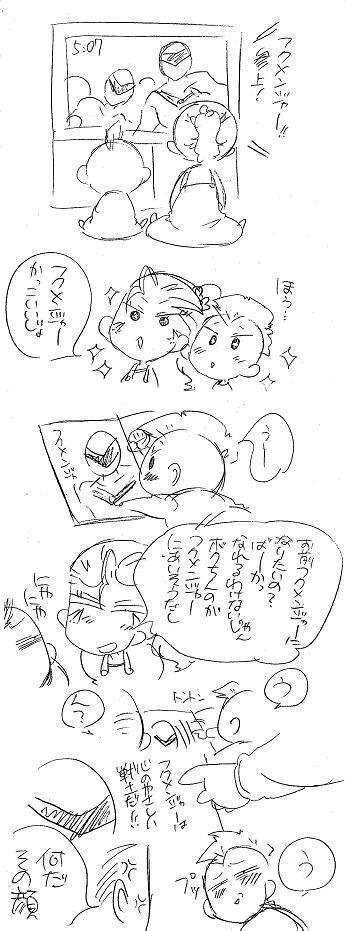 5:07
フクメンジャー!!
参上!
ほう…
フクメンジャー
かっこいいじょ
うー
フクメンジャー
お前フクメンジャーに
なりたいの?
ばーかっ
なれるわけないじゃん
ボクちんのが
フクメンジャー
にあいそうだし
にやにや
う
トントン
ん?
フクメンジャーは
心のやさしい
戦士だ!!
う
プッ
何だ
その顔